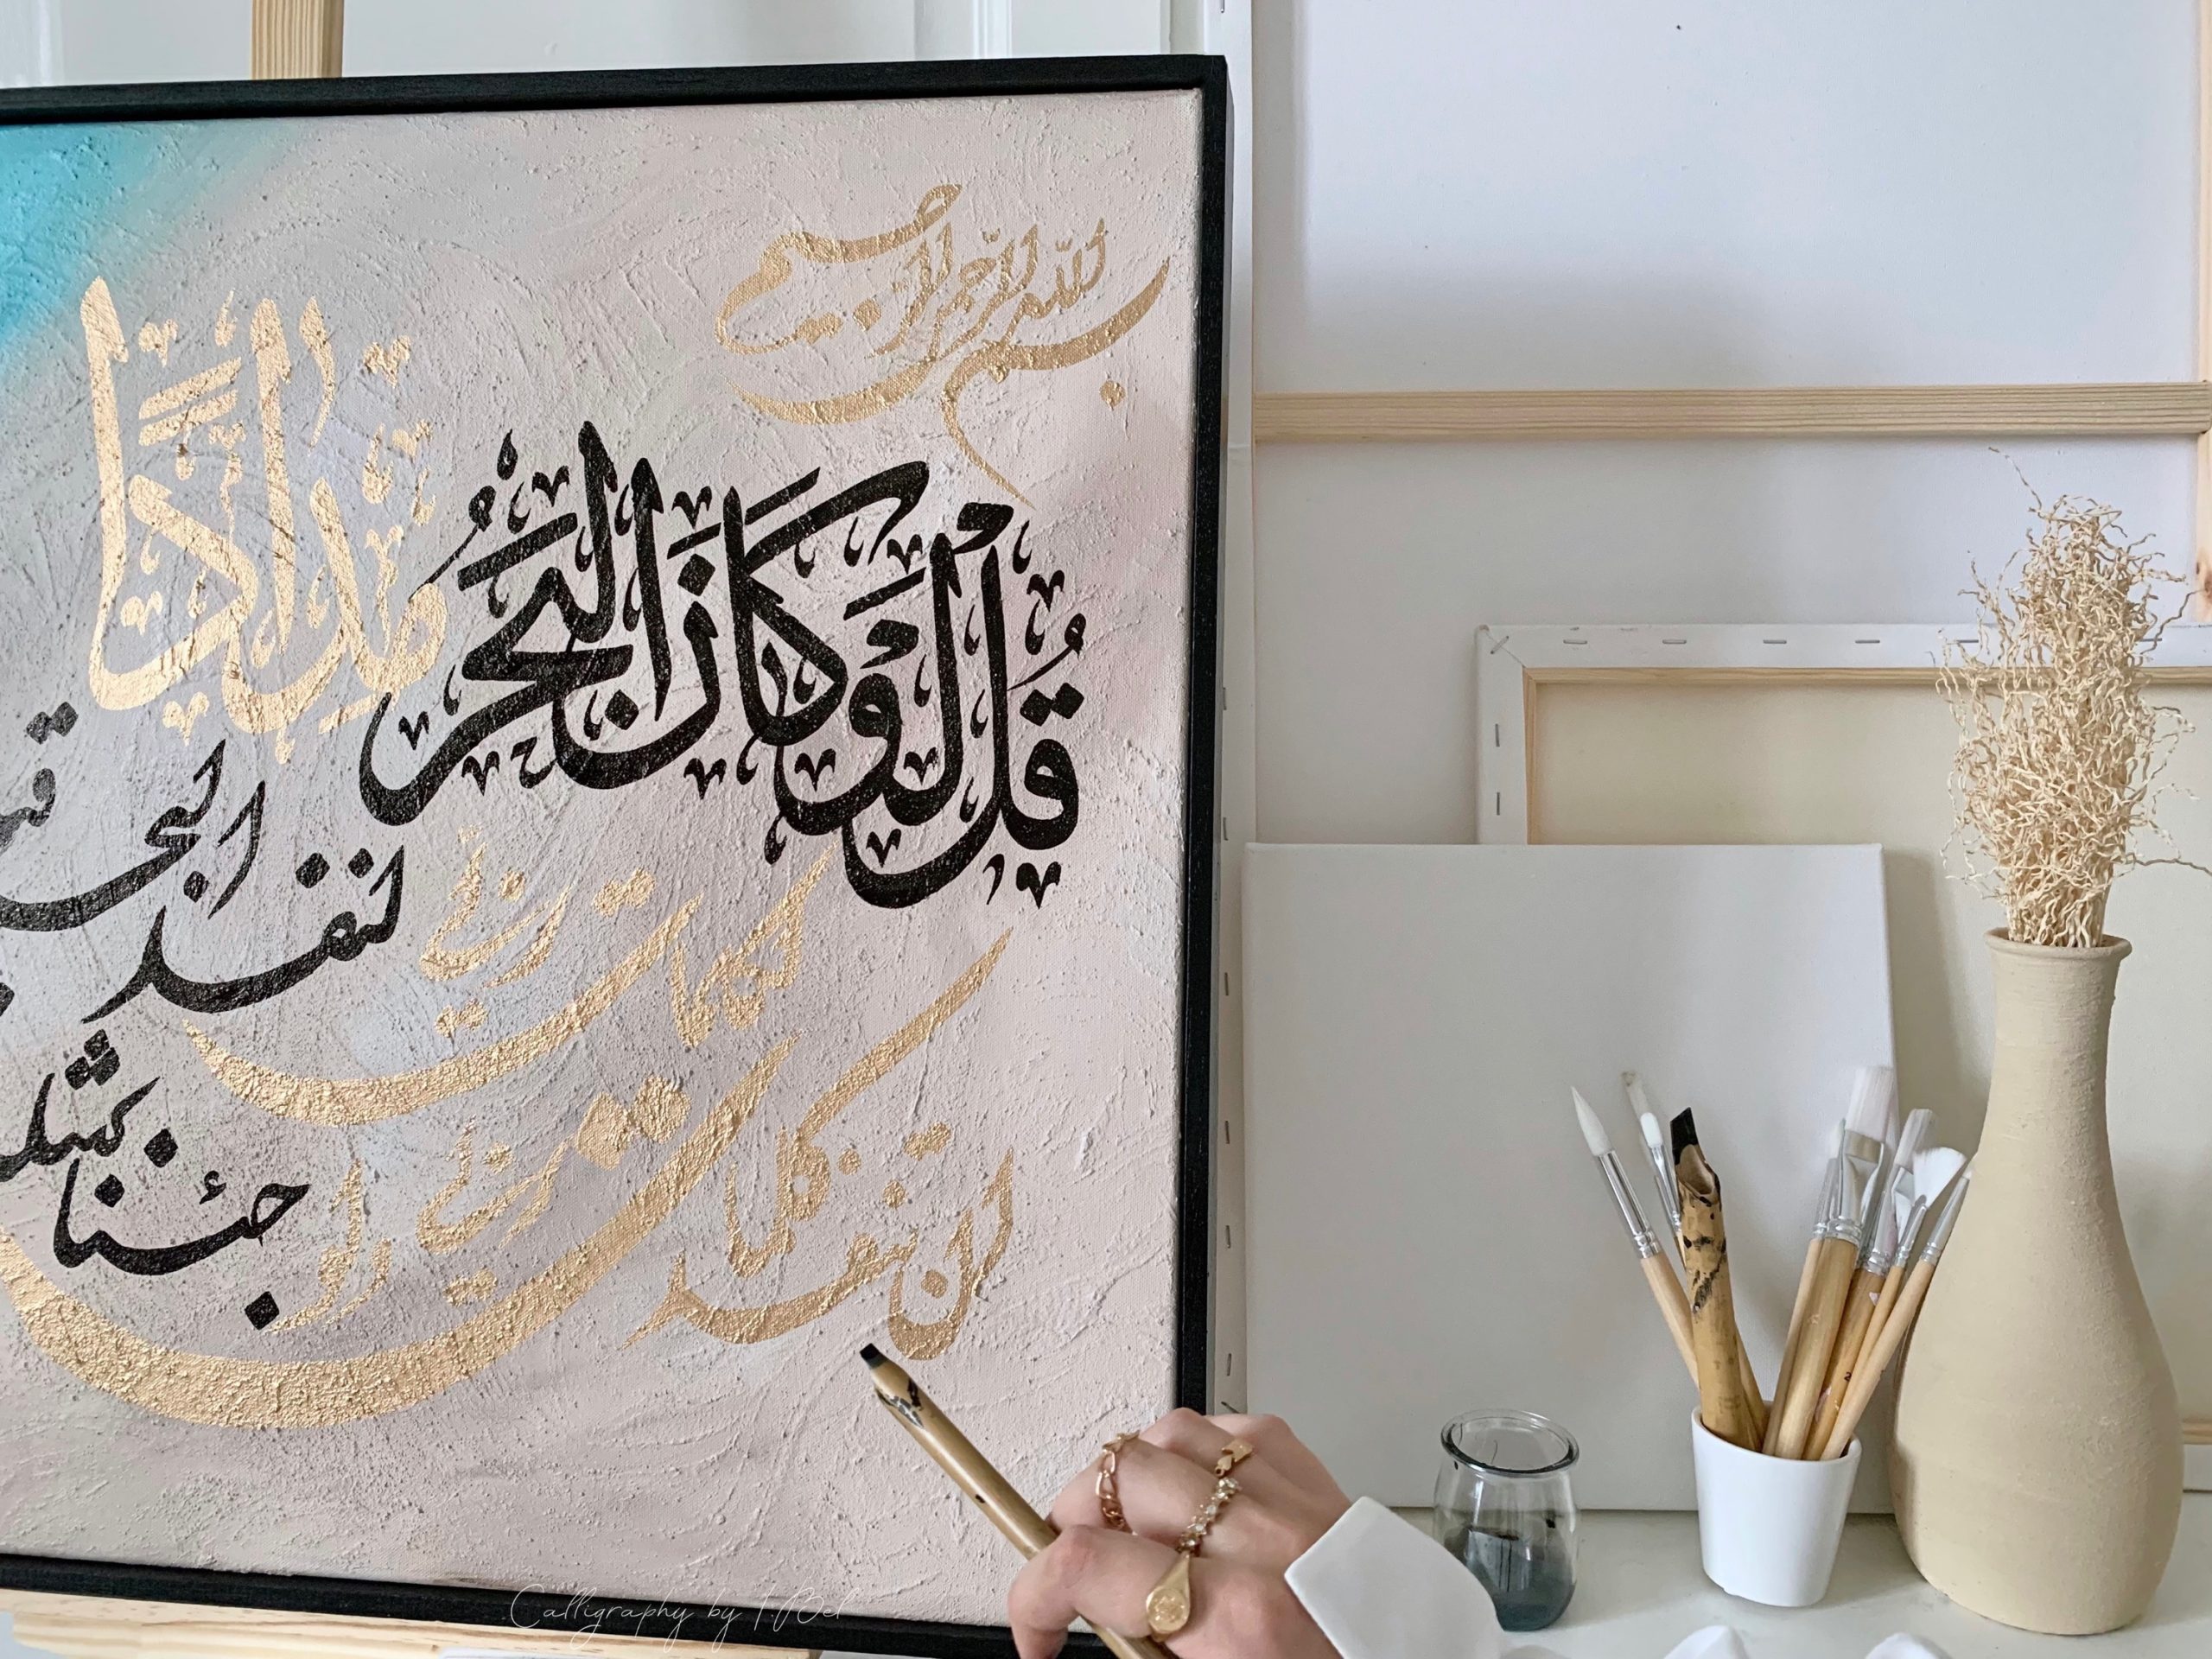 بسم الله الرحمن الرحيم
قُلْ لَوْ كَانَ الْبَحْرُ مِدَادًا
لكلمات ربي لنفد البحر
ان تنفد كلمات ربي ولو جئنا
Calligraphy by I.Bel